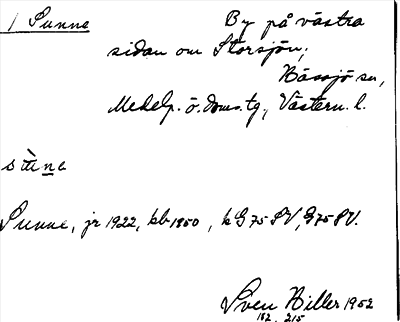 1 Sunne By på västra
sidan om Storsjön,
Bässjö sn,
Medelp. ö. doms.tg., Västern. l.
Sunne, jr 1922, kb 1950, k G75 SV, G75 SV.
Sven Hiller 1952
182 215